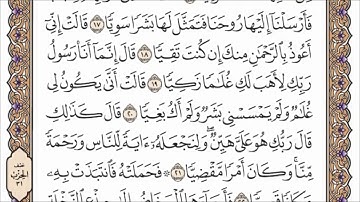 فَأَرْسَلْنَا إِلَيْهَا رُوحَنَا فَتَمَثَّلَ لَهَا بَشَرًا سَوِيًّا ١٧ قَالَتْ إِنِّي
أَعُوذُ بِالرَّحْمَٰنِ مِنكَ إِن كُنتَ تَقِيًّا ١٨ قَالَ إِنَّمَا أَنَا۠ رَسُولُ
رَبِّكِ لِأَهَبَ لَكِ غُلَٰمًا زَكِيًّا ١٩ قَالَتْ أَنَّىٰ يَكُونُ لِي
غُلَٰمٌ وَلَمْ يَمْسَسْنِي بَشَرٌ وَلَمْ أَكُ بَغِيًّا ٢٠ قَالَ كَذَٰلِكِ
قَالَ رَبُّكِ هُوَ عَلَيَّ هَيِّنٌ ۖ وَلِنَجْعَلَهُۥٓ ءَايَةً لِّلنَّاسِ وَرَحْمَةً
مِّنَّا ۚ وَكَانَ أَمْرًا مَّقْضِيًّا ٢١ فَحَمَلَتْهُ فَانتَبَذَتْ بِهِۦ
نصف
الحزب
٣١